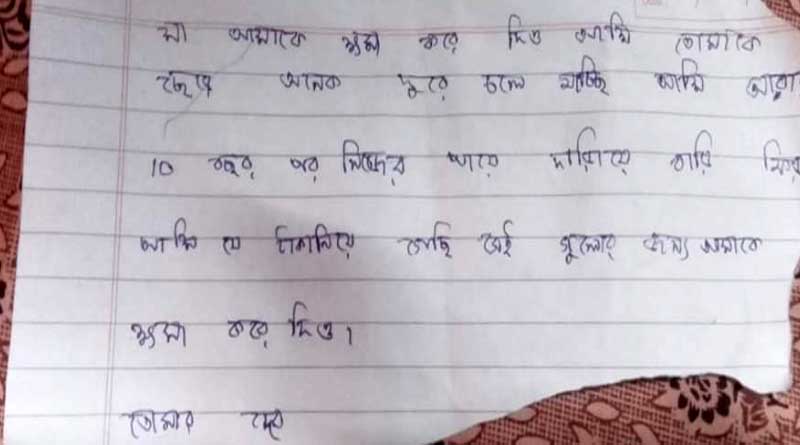 মা আমাকে ক্ষমা করে দিও আমি তোমাকে
ছেড়ে অনেক দূরে চলে যাচ্ছি আমি আবার
10 বছর পর নিজের পায়ে দাঁড়িয়ে বাড়ি ফিরব
আমি যে টাকা নিয়ে গেছি সেই গুলোর জন্য আমাকে
ক্ষমা করে দিও।
তোমার দেব